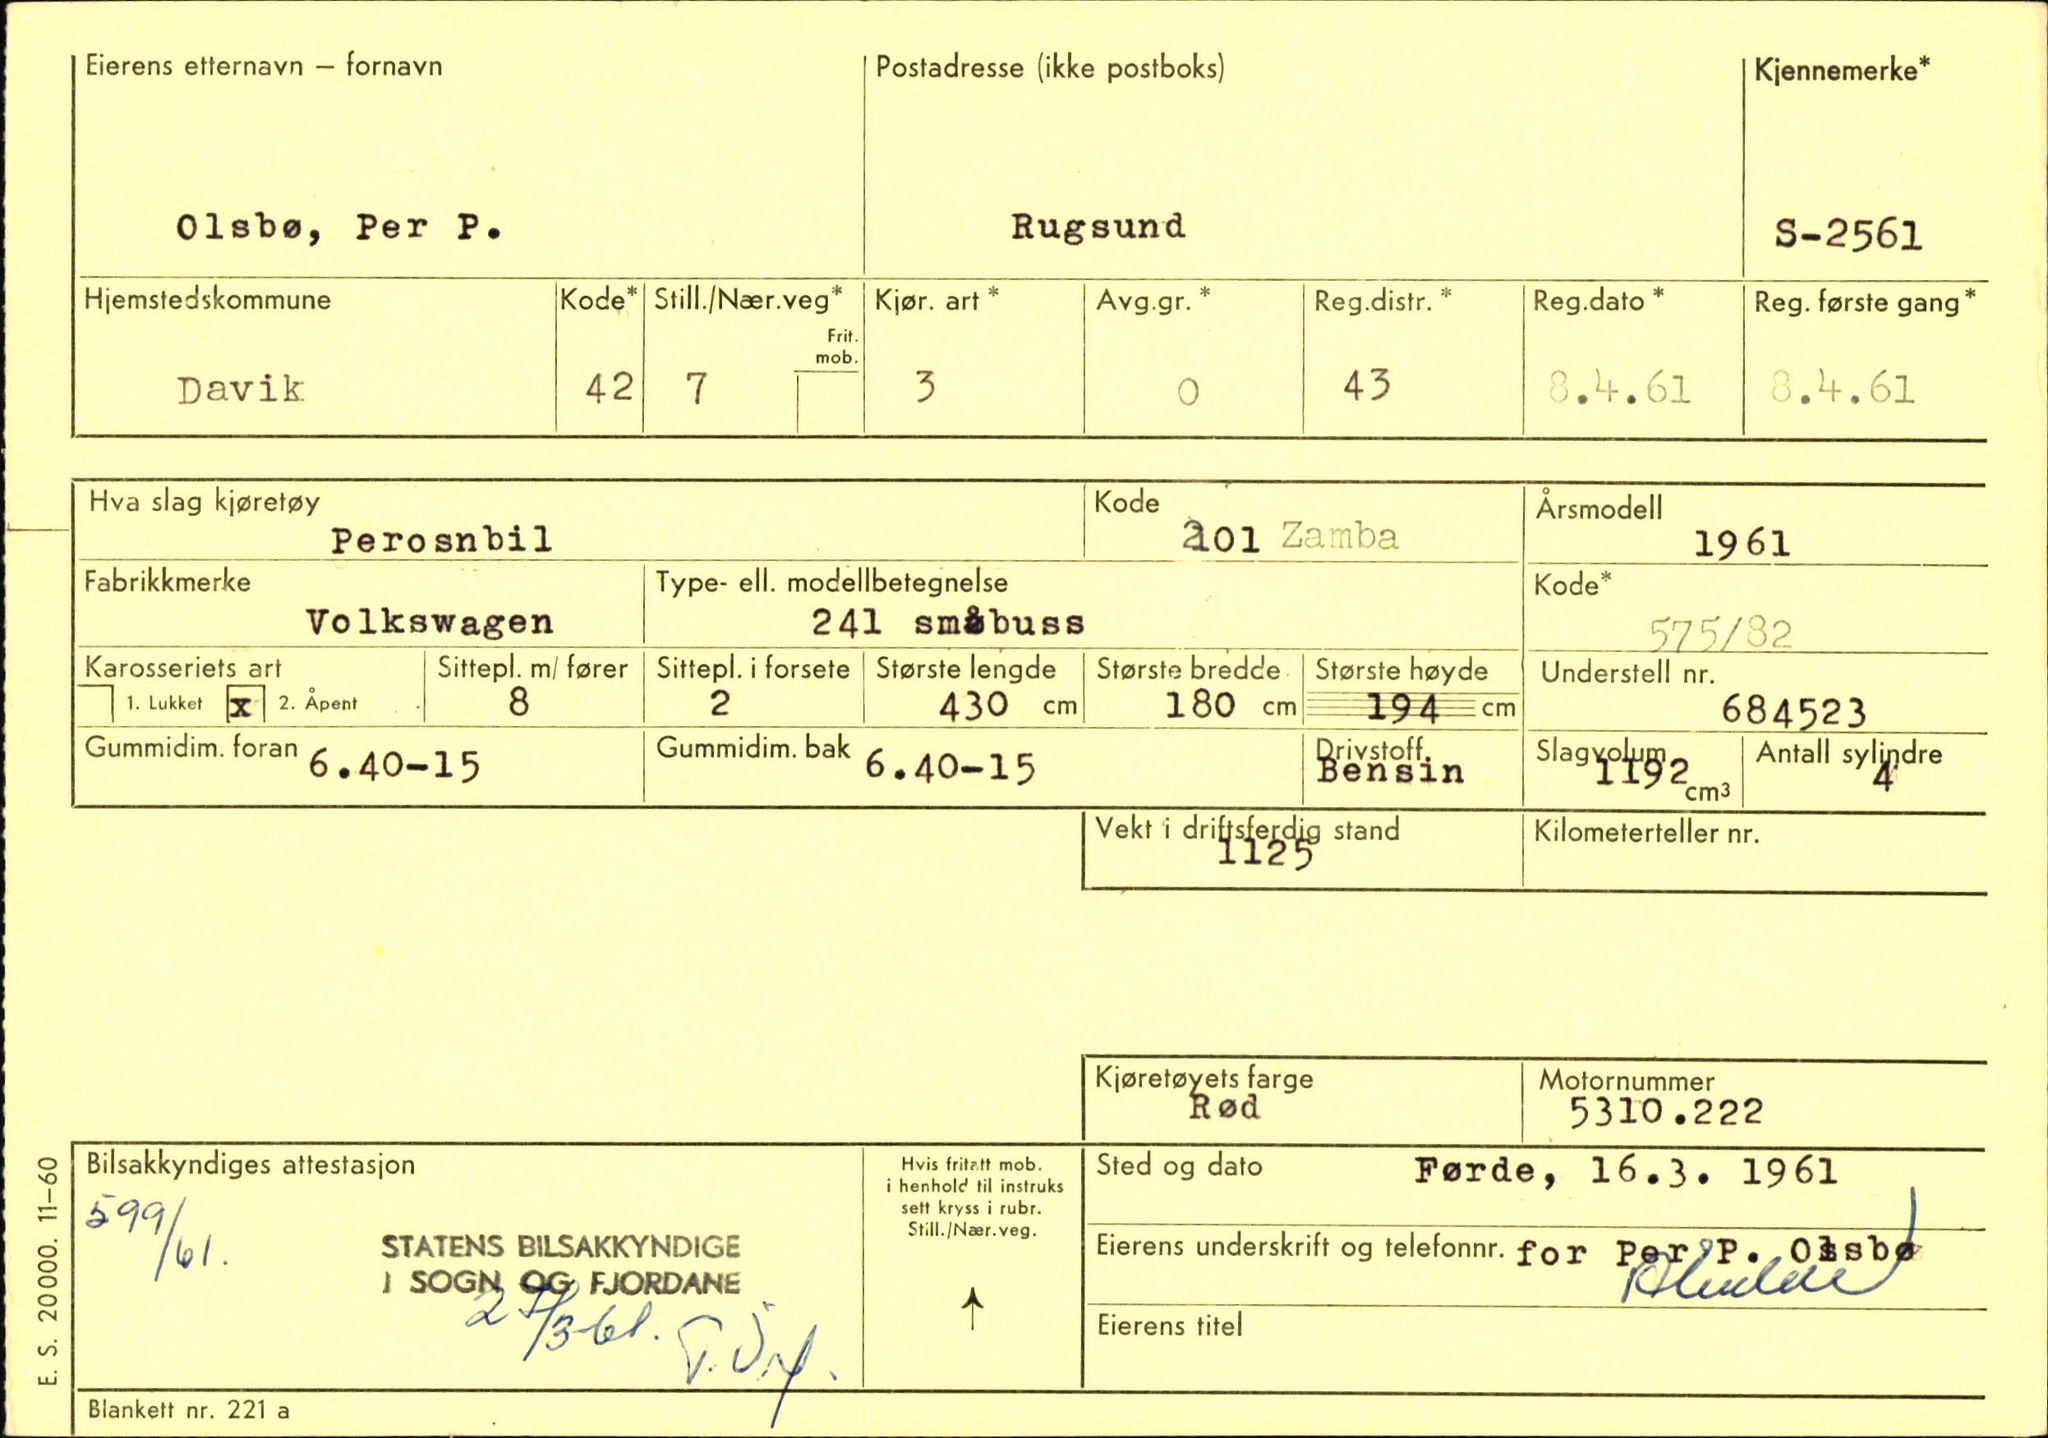 Eierens etternavn – fornavn
Postadresse (ikke postboks)
Kjennemerke*
Olsbø, Per P.
Rugsund
S-2561
Hjemstedskommune
Kode*
Still./Nær.veg*
Frit. mob.
Kjør. art *
Avg.gr. *
Reg.distr. *
Reg.dato *
Reg. første gang *
Davik
42
7
3
0
43
8.4.61
8.4.61
Hva slag kjøretøy
Perosnbil
Kode
201 Zamba
Årsmodell
1961
Fabrikkmerke
Volkswagen
Type- ell. modellbetegnelse
241 småbuss
Kode*
575/82
Karosseriets art
1. Lukket x 2. Åpent
Sittepl. m/ fører
8
Sittepl. i forsete
2
Største lengde
430 cm
Største bredde
180 cm
Største høyde
194 cm
Understell nr.
684523
Gummidim. foran 6.40-15
Gummidim. bak 6.40-15
Drivstoff
Bensin
Slagvolum
1192 cm³
Antall sylindre
4
Vekt i driftsferdig stand
1125
Kilometerteller nr.
Kjøretøyets farge
Rød
Motornummer
5310.222
Bilsakkyndiges attestasjon
599/61.
STATENS BILSAKKYNDIGE
I SOGN OG FJORDANE
Hvis fritatt mob.
i henhold til instruks
sett kryss i rubr.
Still./Nær.veg.
Sted og dato Førde, 16.3. 1961
Eierens underskrift og telefonnr. for Per P. Olsbø
Eierens titel
Blankett nr. 221 a
E. S. 20000. 11–60